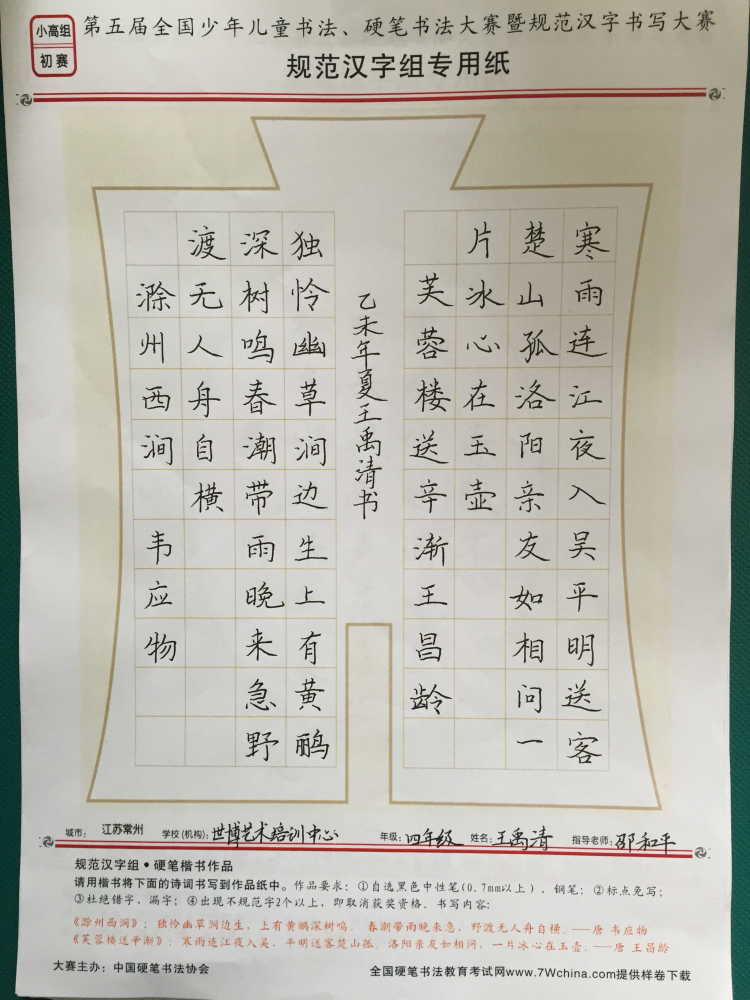 小高组
初赛
第五届全国少年儿童书法、硬笔书法大赛暨规范汉字书写大赛
规范汉字组专用纸
寒雨连江夜入吴平明送客
楚山孤洛阳亲友如相问一
片冰心在玉壶
芙蓉楼送辛渐王昌龄
乙未年夏王禹清书
独怜幽草涧边生上有黄鹂
深树鸣春潮带雨晚来急野
渡无人舟自横
滁州西涧 韦应物
城市：江苏常州 学校(机构)：世博艺术培训中心 年级：四年级 姓名：王禹清 指导老师：邵和平
规范汉字组•硬笔楷书作品
请用楷书将下面的诗词书写到作品纸中。作品要求：①自选黑色中性笔(0.7mm以上)、钢笔；②标点免写；
③杜绝错字、漏字；④出现不规范字2个以上，即取消获奖资格。书写内容：
《滁州西涧》：独怜幽草涧边生，上有黄鹂深树鸣。春潮带雨晚来急，野渡无人舟自横。——唐 韦应物
《芙蓉楼送辛渐》：寒雨连江夜入吴，平明送客楚山孤。洛阳亲友如相问，一片冰心在玉壶。——唐 王昌龄
大赛主办：中国硬笔书法协会 全国硬笔书法教育考试网www.7Wchina.com提供样卷下载